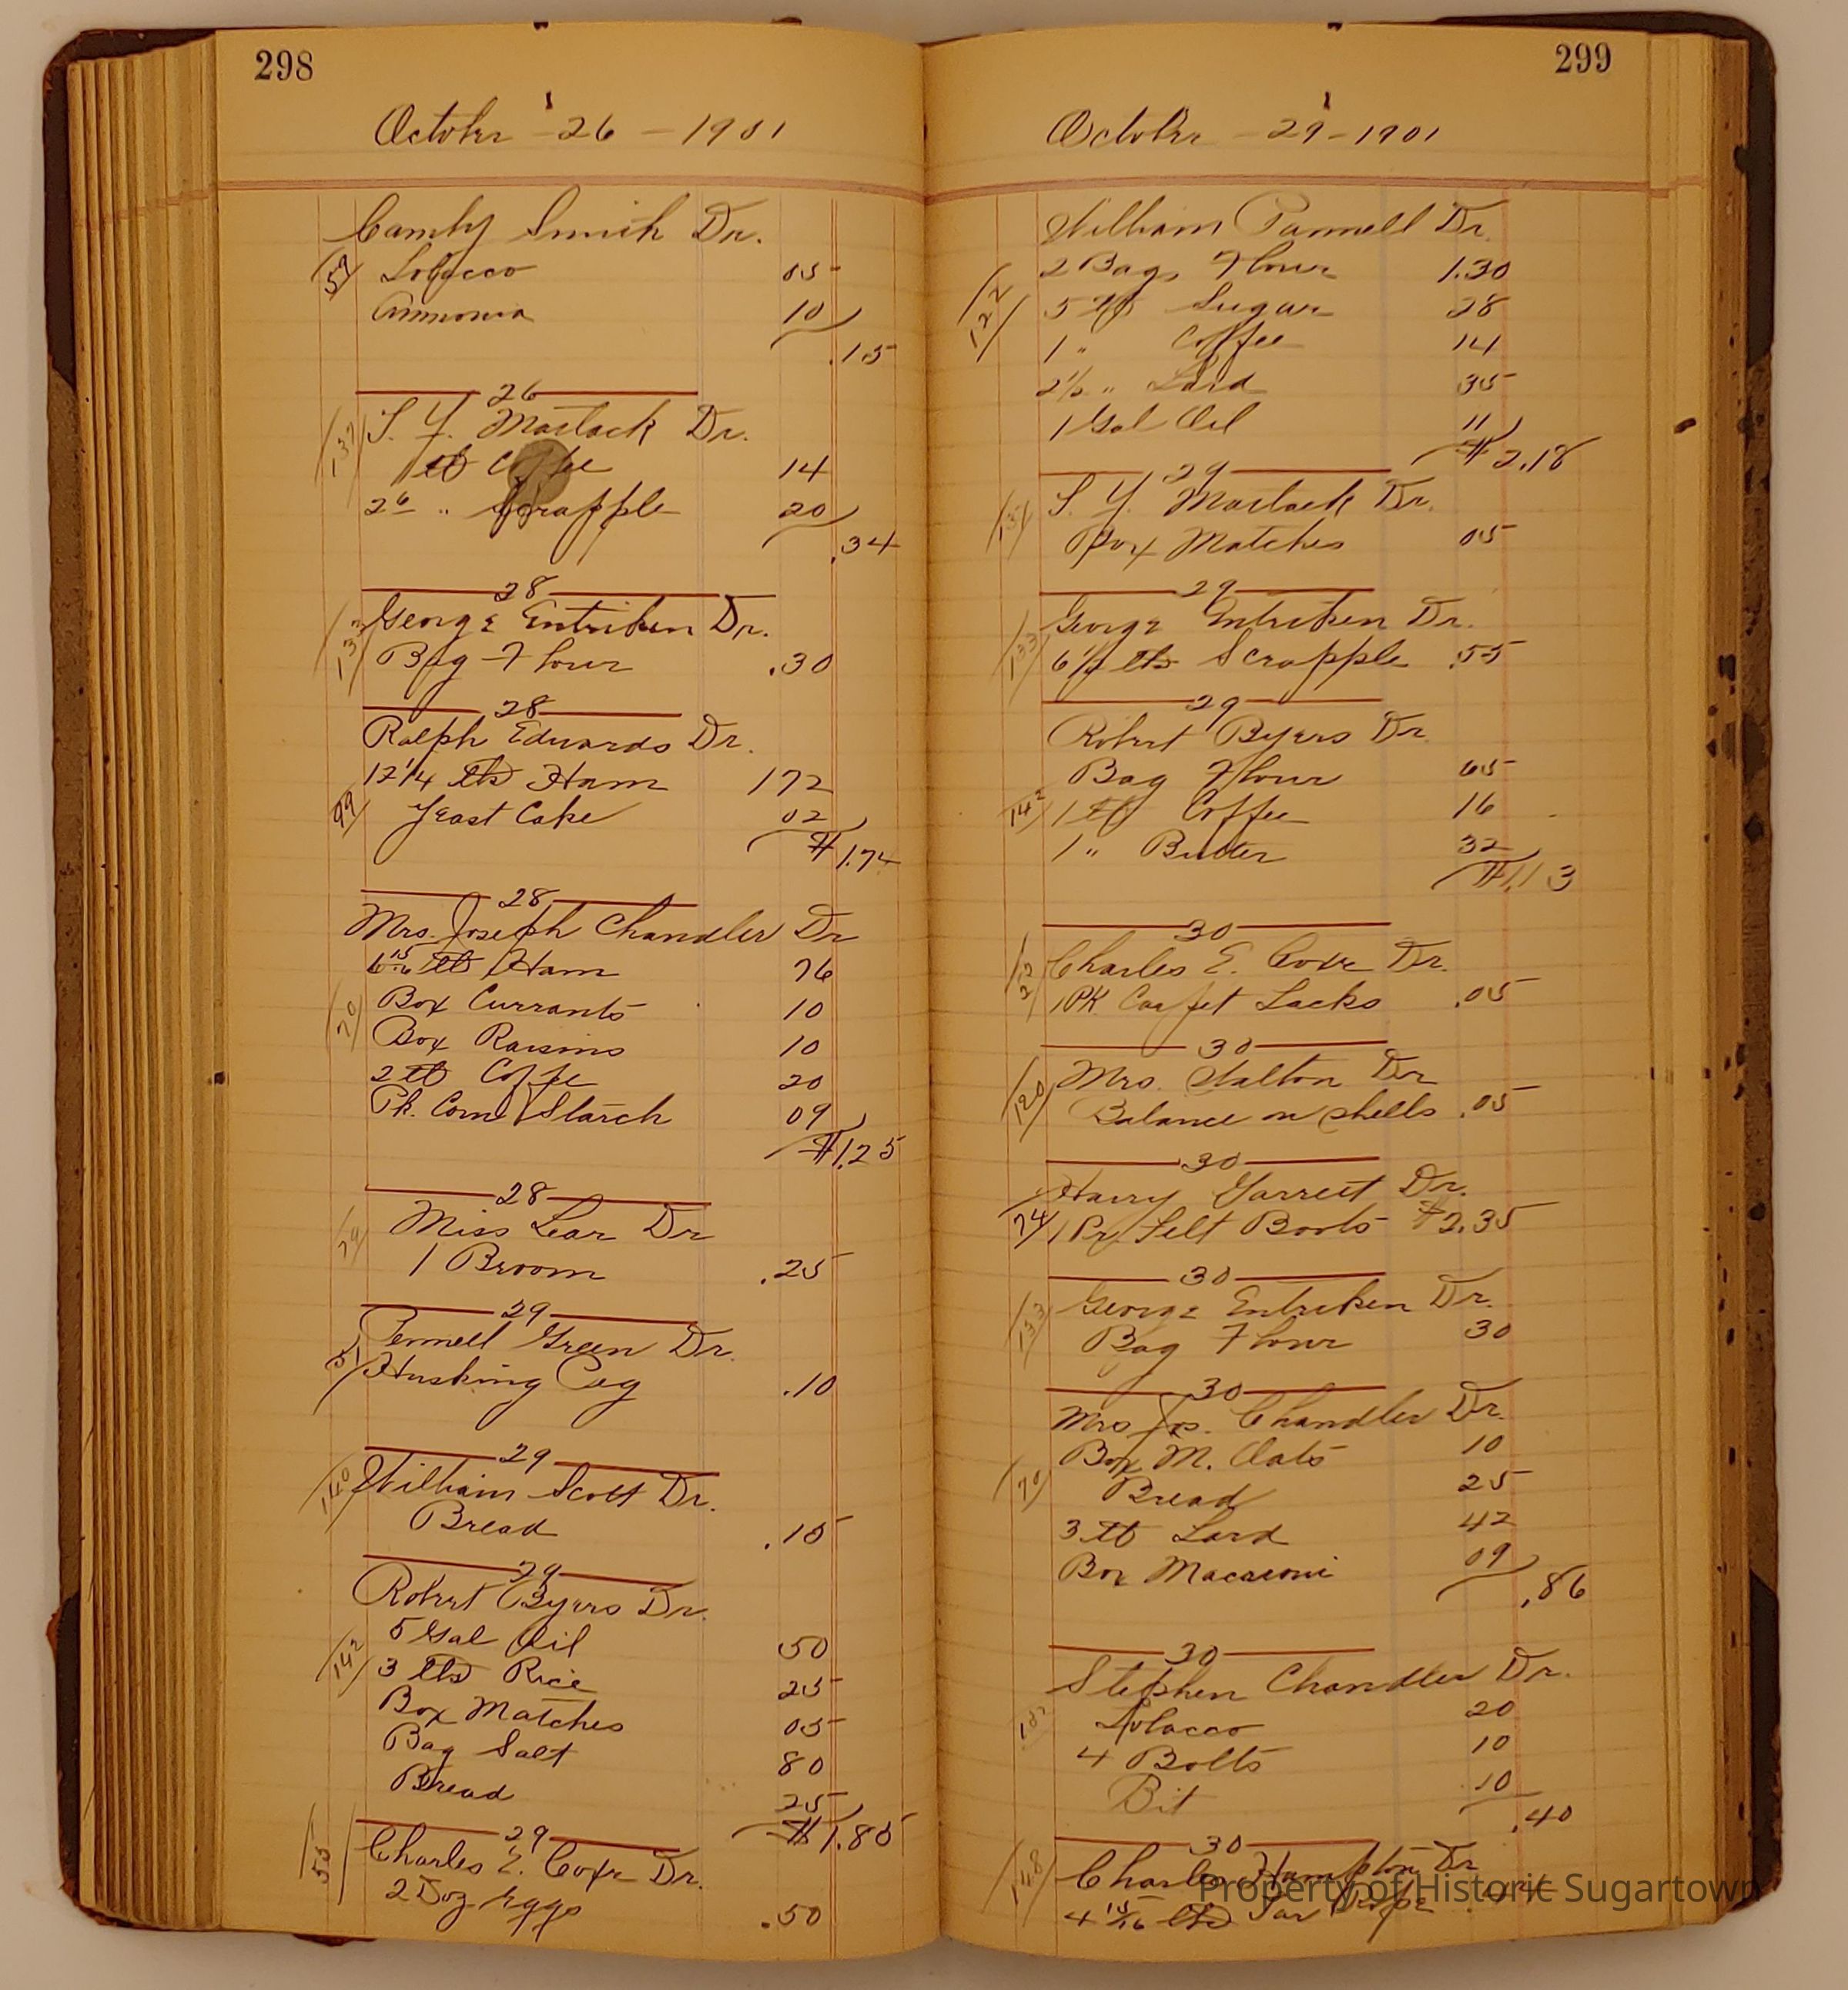 298
October - 26 - 1901
Camby Smith Dr.
59
Tobacco 05
Ammonia 10
.15
26
137
S. Y. Matlack Dr.
1 lb Coffee 14
2 6 " Scrapple 20
.34
28
133
George Entriken Dr.
Bag Flour .30
28
Ralph Edwards Dr.
12 1/4 lbs Ham 172
99
Yeast Cake 02
$1.74
28
Mrs. Joseph Chandler Dr
lbs Ham 76
70
Box Currants 10
Box Raisins 10
2 lb Coffe 20
Pk. Corn Starch 09
$1.25
28
Miss Lear Dr
1 Broom .25
29
Pennell Green Dr.
51
Husking Peg .10
29
140
William Scott Dr.
Bread .15
29
Robert Byers Dr.
5 Gal Oil 50
142
3 lbs Rice 25
Box Matches 05
Bag Salt 80
Bread 25
$1.85
29
55
Charles E. Coxe Dr.
2 Doz Eggs .50
299
October - 29 - 1901
William Pannell Dr.
2 Bags Flour 1.30
122
5 lbs Sugar 28
1 " Coffee 14
2 1/2 " Lard 35
1 Gal Oil 11
$2.18
29
137
S. Y. Matlack Dr.
Box Matches 05
29
George Entriken Dr.
133
6 1/2 lbs Scrapple .55
29
Robert Byers Dr
Bag Flour 65
142
1 lb Coffee 16
1 " Butter 32
$1.13
30
Charles E. Coxe Dr.
1 PK Carpet Tacks .05
30
120
Mrs. Stalton Dr
Balance on shells .05
30
Harry Garrett Dr.
74
1 Pr Felt Boots $2.35
30
133
George Entriken Dr.
Bag Flour 30
30
Mrs Jos. Chandler Dr.
Box M. Oats 10
70
Bread 25
3 lb Lard 42
Box Macaroni 09
.86
30
Stephen Chandler Dr.
Tobacco 20
4 Bolts 10
Bit 10
.40
30
148
Charles Hampton Dr
4 15/16 lbs Tar Rope
Property of Historic Sugartown